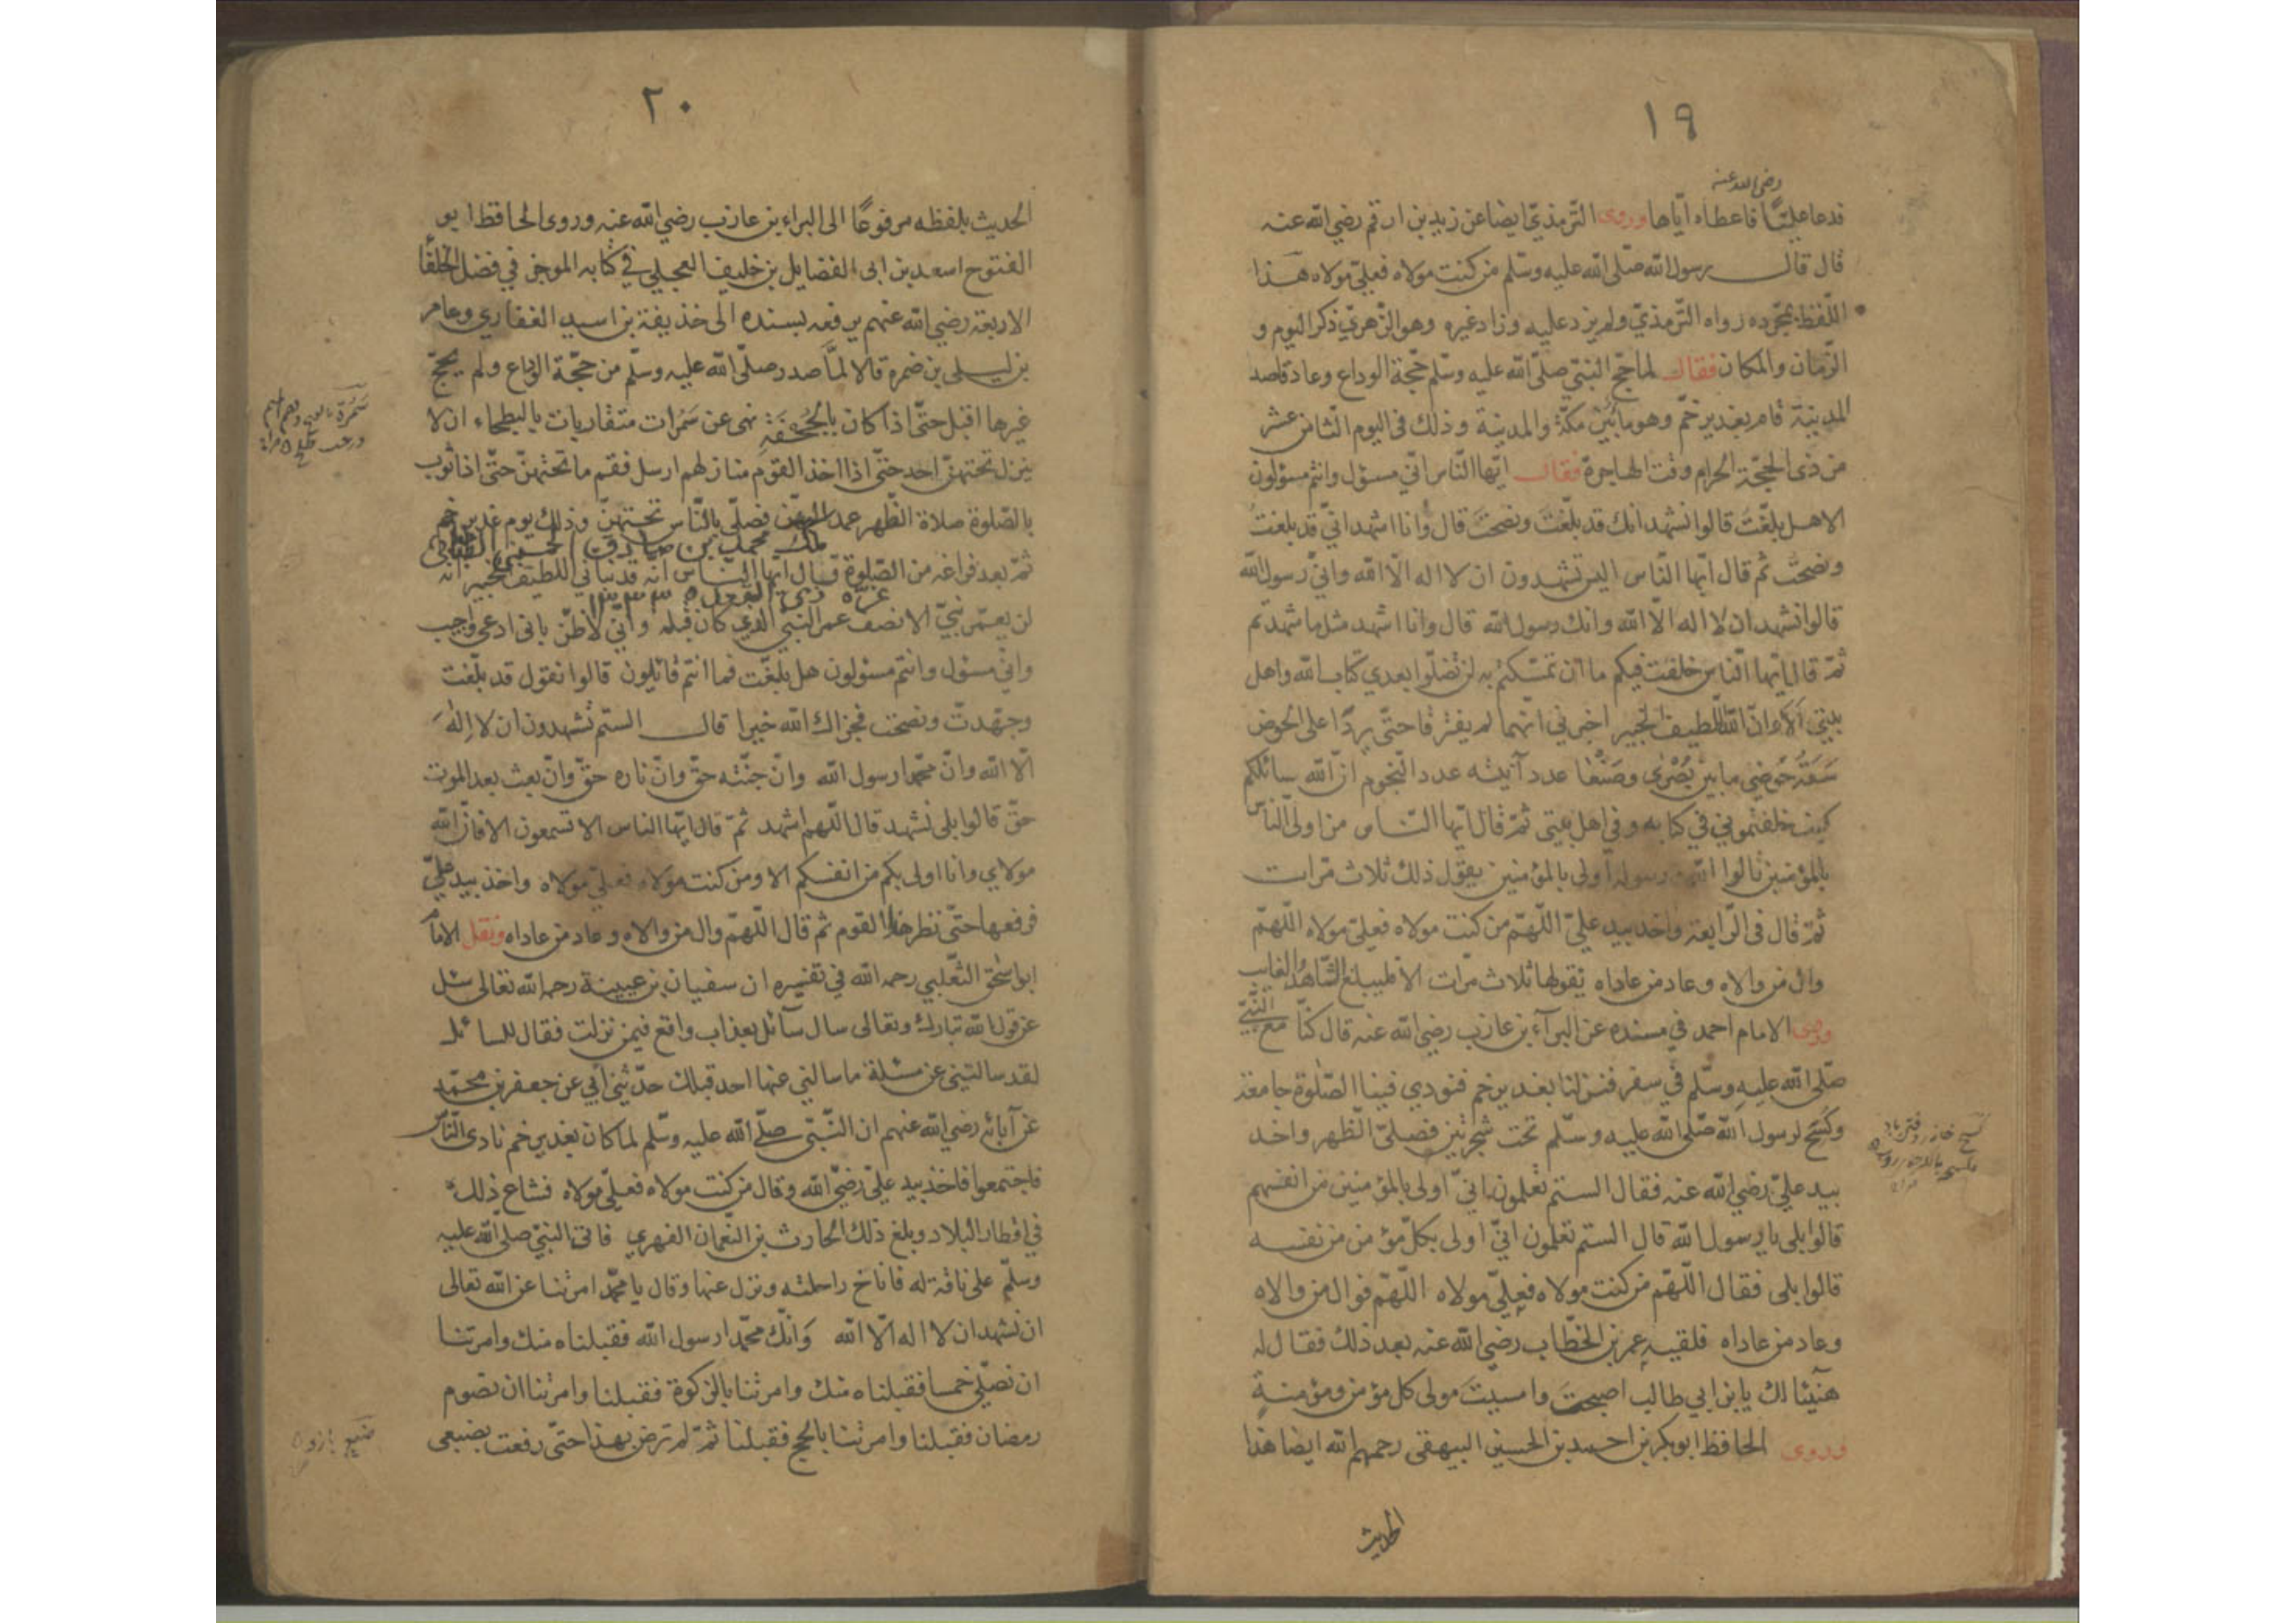 ١٩
رضي الله عنه
فدعا عليًّا فاعطاه ايّاها وروى الترمذيّ ايضا عن زيد بن ارقم رضي الله عنه
قال قال رسول الله صلّى الله عليه وسلّم من كنت مولاه فعليّ مولاه هذا
اللّفظ بمجّرده رواه الترمذيّ ولم يزد عليه وزاد غيره وهو الزّهريّ ذكر اليوم و
الزّمان والمكان فقال لما حجّ النبيّ صلّى الله عليه وسلّم حجّة الوداع وعاد قاصد
المدينة قام بغدير خمّ وهو ما بين مكّة والمدينة وذلك فى اليوم الثامن عشر
من ذى الحجّة الحرام وقت الهاجرة فقال ايّها النّاس انّي مسؤل وانتم مسؤلون
الا هل بلّغت قالوا نشهد انك قد بلّغت ونصحت قال وانا اشهد انّي قد بلغت
ونصحت ثم قال ايّها النّاس اليس تشهدون ان لا اله الّا الله وانيّ رسول الله
قالوا نشهد ان لا اله الّا الله وانك رسول الله قال وانا اشهد مثل ما شهدتم
ثمّ قال ايّها النّاس خلفت فيكم ما ان تمسّكتم به لن تضلّوا بعدي كتاب الله واهل
بيتي ألا وانّ اللّطيف الخبير اخبرني انّهما لم يفترقا حتّى يردّا على الحوض
سَعَةُ حوضي ما بين بُصْرى وصَنْعا عدد آنيته عدد النّجوم انّ الله سائلكم
كيف خلفتموني في كتابه وفي اهل بيتي ثمّ قال ايّها النّاس من اولى النّاس
بالمؤمنين قالوا الله ورسوله اولى بالمؤمنين يقول ذلك ثلاث مّرات
ثمّ قال فى الرّابعة واخذ بيد عليّ اللّهمّ من كنت مولاه فعليّ مولاه اللّهمّ
وال من والاه وعاد من عاداه يقولها ثلاث مرّات الا فليبلغ الشّاهدُ الغايب
وروى الامام احمد في مسنده عن البرآء بن عازب رضي الله عنه قال كنّا مع النّبيّ
صلّى الله عليه وسلّم في سفر فنزلنا بغدير خم فنودي فينا الصّلوة جامعة
وكسح لرسول الله صلّى الله عليه وسلّم تحت شجرتين فصلّى الظّهر واخذ
بيد عليّ رضي الله عنه فقال الستم تعلمون انيّ اولى بالمؤمنين من انفسهم
قالوا بلى يا رسول الله قال الستم تعلمون انيّ اولى بكلّ مؤمن من نفسه
قالوا بلى فقال اللّهمّ من كنت مولاه فعليّ مولاه اللّهمّ فوال من والاه
وعاد من عاداه فلقيه عمر بن الخطّاب رضي الله عنه بعد ذلك فقال له
هنيئا لك يا بن ابي طالب اصبحت وامسيت مولى كل مؤمن ومؤمنة
وروى الحافظ ابو بكر بن احمد بن الحسين البيهقى رحمهم الله ايضا هذا
الحديث
٢٠
الحديث بلفظه مرفوعًا الى البراء بن عازب رضي الله عنه وروى الحافظ ابو
الفتوح اسعد بن ابى الفضايل بن خليفة العجلي في كتابه الموجز في فضل الخلفا
الاربعة رضي الله عنهم يرفعه بسنده الى حذيفة بن اسيد الغفاري وعامر
بن ليلى بن ضمرة قالا لمّا صدر صلّى الله عليه وسلّم من حجّة الوداع ولم يحجّ
غيرها اقبل حتّى اذا كان بالجُحْفَة نهى عن سَمُرات متقاربات بالبطحاء ان لا
ينزل تحتهنّ احد حتّى اذا اخذ القوم منازلهم ارسل فقم ما تحتهنّ حتّى اذا ثوب
بالصّلوة صلاة الظّهر عمد اليهنّ فصلّى بالنّاس تحتهنّ وذلك يوم غدير خم
ملك محمد بن صادق الحسيني
ثمّ بعد فراغه من الصّلوة قال ايّها النّاس انّه قد نبأني اللطيف الخبير انه
غرّة ذي القعدة
لن يعمّر نبيّ الا نصف عمر النبيّ الّذي كان قبله وانّي لاظنّ بانى ادعى واجيب
وانّي مسؤل وانتم مسؤلون هل بلّغت فما انتم قائلون قالوا نقول قد بلّغت
وجهّدت ونصحت فجزاك الله خيرا قال الستم تشهدون ان لا اله
الّا الله وانّ محمّدا رسول الله وانّ جنّته حقّ وانّ ناره حقّ وانّ بعث بعد الموت
حقّ قالوا بلى نشهد قال اللّهم اشهد ثمّ قال ايّها الناس الا تسمعون الا فانّ الله
مولاي وانا اولى بكم من انفسكم الا ومن كنت مولاه فعليّ مولاه واخذ بيد عليّ
فرفعها حتّى نظرها القوم ثم قال اللّهمّ وال من والاه وعاد من عاداه ونقل الامام
ابو اسحق الثّعلبي رحمه الله في تفسيره ان سفيان بن عيينة رحمه الله تعالى سئل
عن قول الله تبارك وتعالى سال سآئل بعذاب واقع فيمن نزلت فقال للسائل
لقد سالتني عن مسئلة ما سالني عنها احد قبلك حدّثني أبي عن جعفر بن محمّد
عن آبائه رضي الله عنهم ان النّبيّ صلّى الله عليه وسلّم لما كان بغدير خم نادى النّاس
فاجتمعوا فاخذ بيد عليّ رضيّ الله وقال من كنت مولاه فعليّ مولاه فشاع ذلك
في اقطار البلاد وبلغ ذلك الحارث بن النّعمان الفهري فاتى النبيّ صلّى الله عليه
وسلّم على ناقة له فاناخ راحلته ونزل عنها وقال يا محمّد امرتنا عن الله تعالى
ان نشهد ان لا اله الّا الله وانّك محمّدا رسول الله فقبلناه منك وامرتنا
ان نصلّي خمسا فقبلناه منك وامرتنا بالزكوة فقبلنا وامرتنا ان نصوم
رمضان فقبلنا وامرتنا بالحج فقبلنا ثمّ لم ترض بهذا حتّى رفعت بضبعى